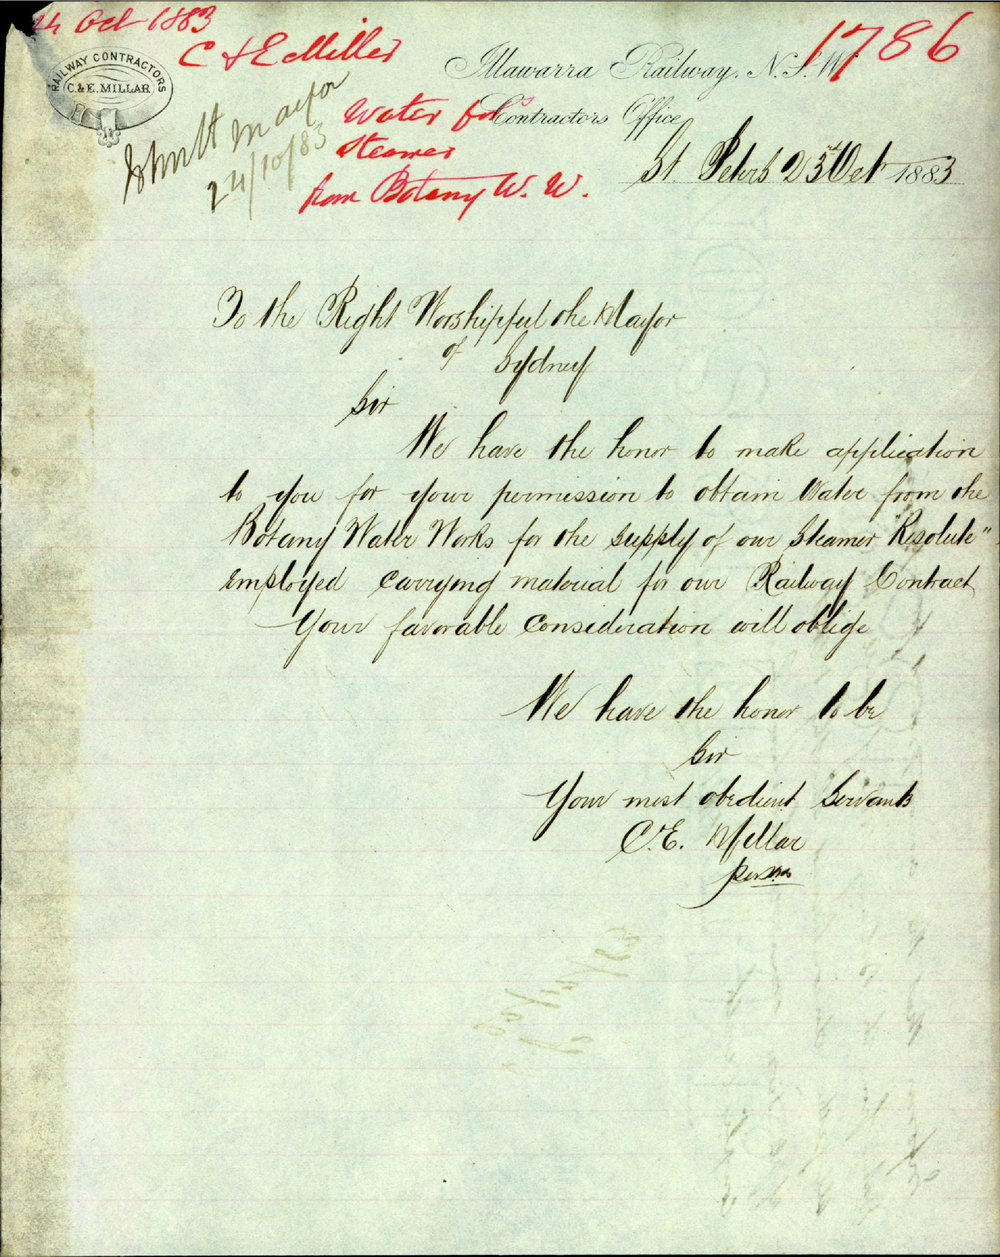 24 Oct 1883
1786
C & E Miller
RAILWAY CONTRACTORS
C. & E. MILLAR
Illawarra Railway, N.S.W.
Contractors Office
Mayor
24/10/83
Water for
Steamer
from Botany W. W.
St. Peters 23rd Oct 1883
To the Right Worshipful the Mayor
of Sydney
Sir
We have the honor to make application
to you for your permission to obtain Water from the
Botany Water Works for the supply of our Steamer "Resolute"
employed carrying material for our Railway Contract
Your favorable consideration will oblige
We have the honor to be
Sir
Your most obedient Servants
C. E. Millar